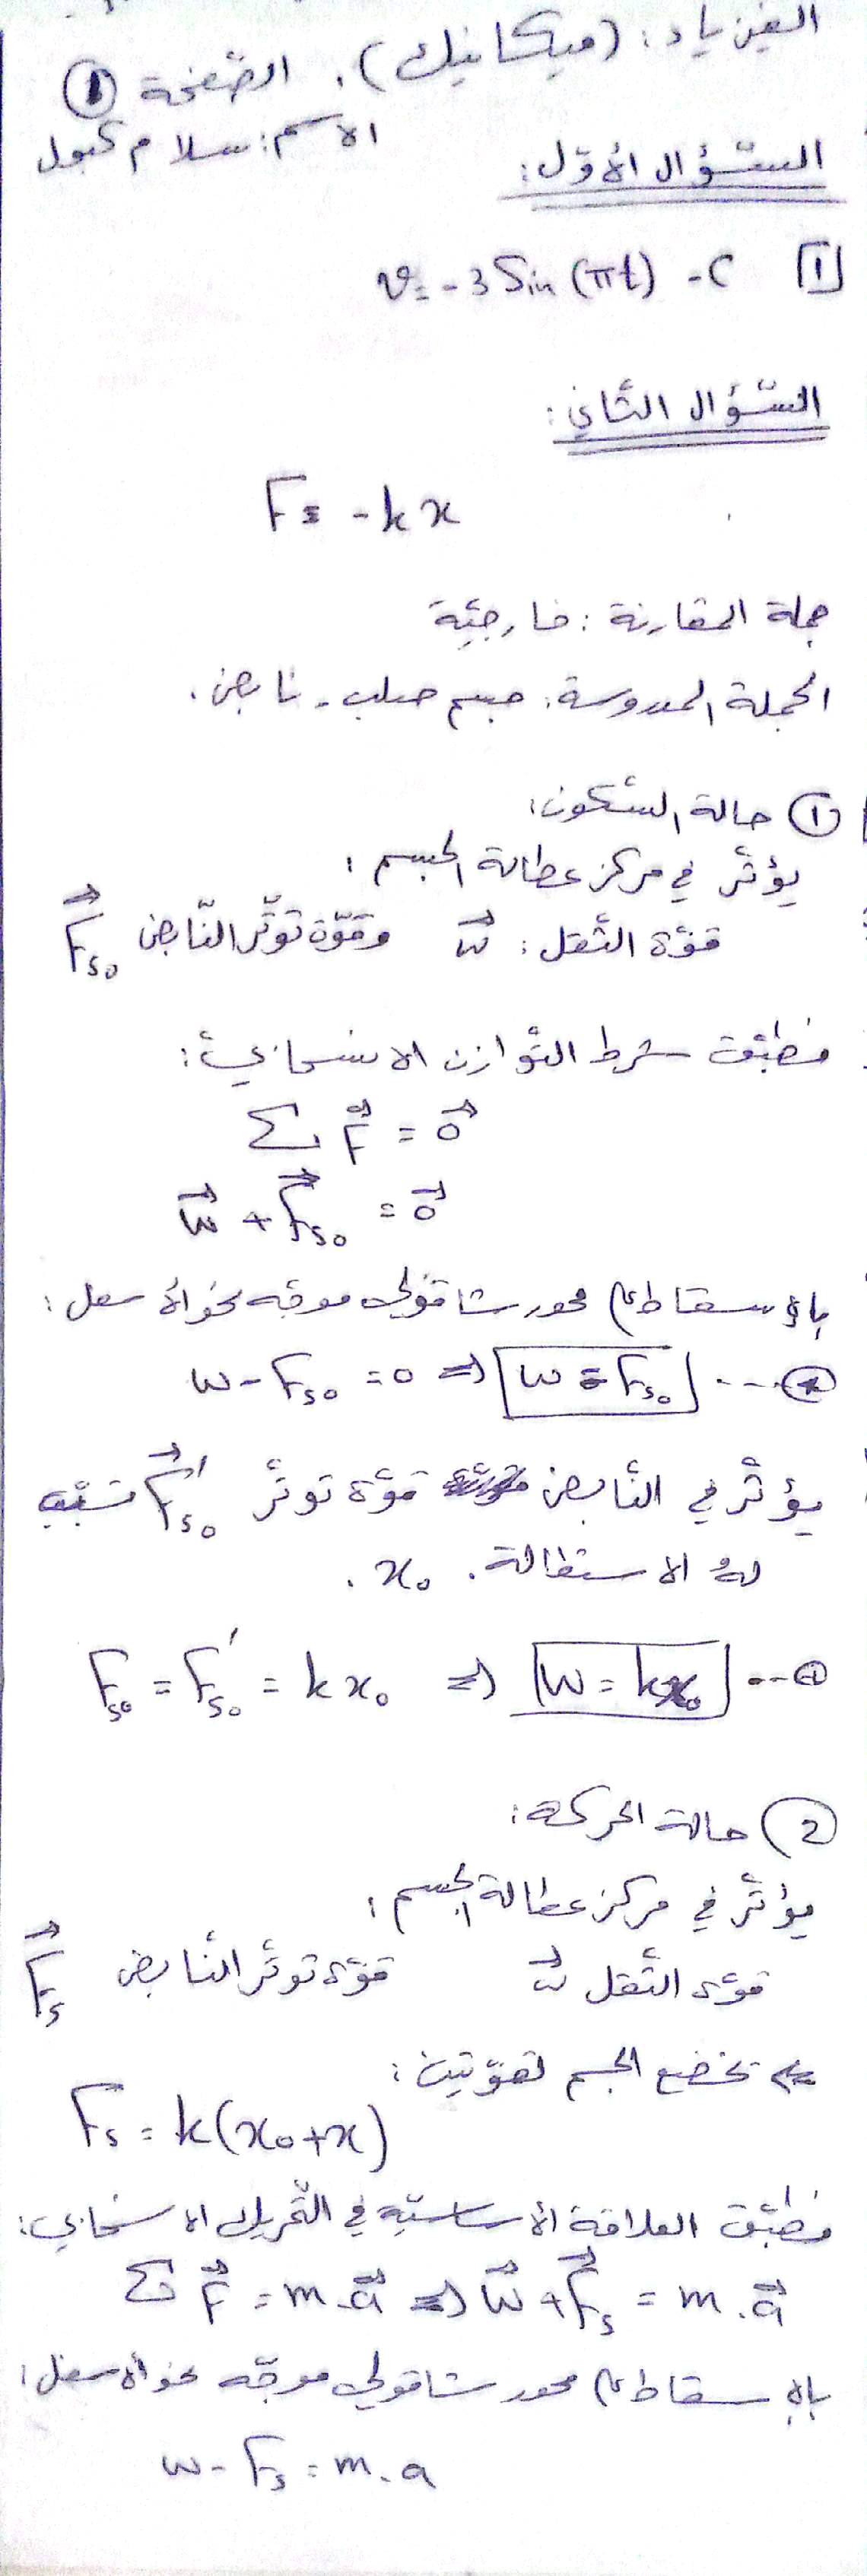 الفيزياء: (ميكانيك). الصّفحة ①
الاسم: سلام كبول
السّؤال الأوّل:
1] c- v = -3 Sin (πt)
السّؤال الثّاني:
F = -kx
جملة المقارنة: خارجيّة
الجملة المدروسة: جسم صلب - نابض.
① حالة السّكون:
يؤثّر في مركز عطالة الجسم:
قوّة الثّقل: W⃗ وقوّة توتّر النّابض F⃗s₀
نطبّق شرط التّوازن الانسحابيّ:
Σ F⃗ = 0⃗
W⃗ + F⃗s₀ = 0⃗
بالإسقاط على محور شاقولي موجّه نحو الأسفل:
W - Fs₀ = 0 ⇒ W = Fs₀ ...
يؤثّر في النّابض قوّة توتّر F⃗'s₀ تسبّب
له الاستطالة x₀.
Fs₀ = F's₀ = k x₀ ⇒ W = kx₀ ... ①
② حالة الحركة:
يؤثّر في مركز عطالة الجسم:
قوّة الثّقل W⃗ قوّة توتّر النّابض F⃗s
يخضع الجسم لقوّتين:
Fs = k(x₀+x)
نطبّق العلاقة الأساسيّة في التّحريك الانسحابي:
Σ F⃗ = m.a⃗ ⇒ W⃗ + F⃗s = m.a⃗
بالإسقاط على محور شاقولي موجّه نحو الأسفل:
W - Fs = m.a